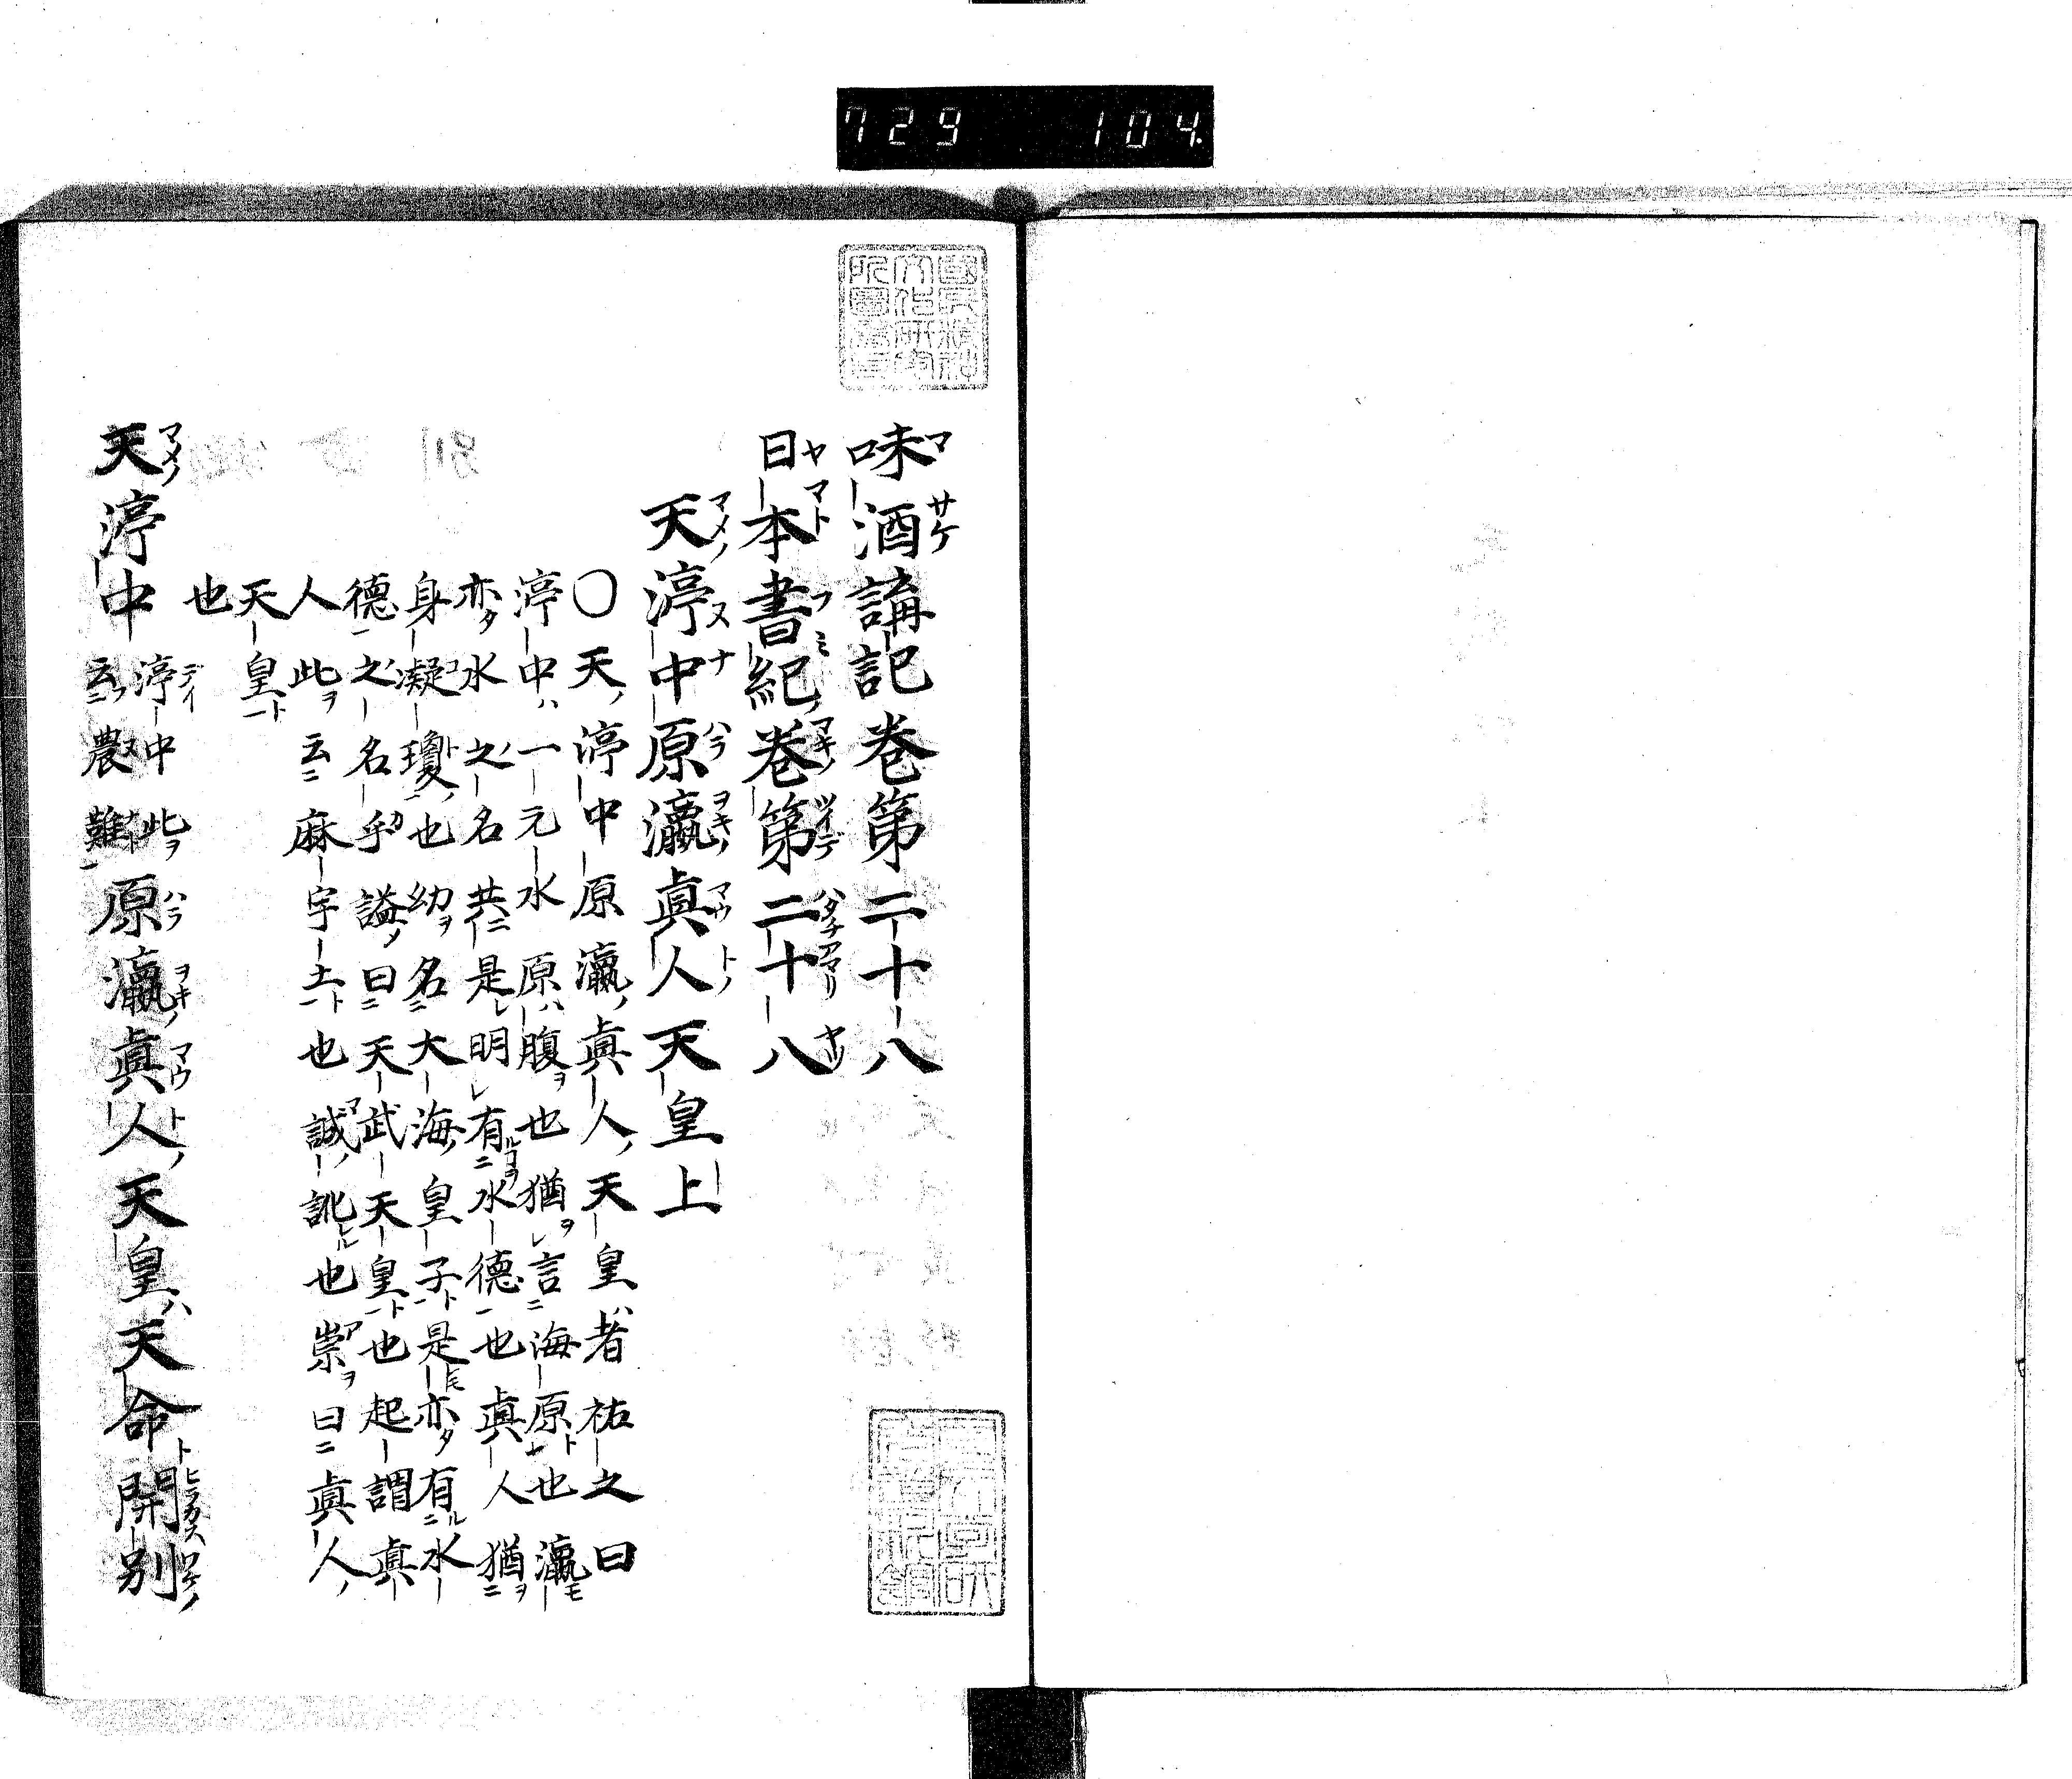 729 104
味酒講記卷第二十八
日本書紀卷第二十八
天渟中原瀛眞人天皇上
〇天渟中原瀛眞人天皇者祐之曰
渟中一元水原腹也猶言海原也瀛
亦水之名共是明有水德也眞人猶
身凝瓊也幼名大海皇子是亦有水
德之名乎謚曰天武天皇也起謂眞
人此云麻宇土也誠訛也崇曰眞人
天皇
也
天渟中渟中此云農難原瀛眞人天皇天命開別